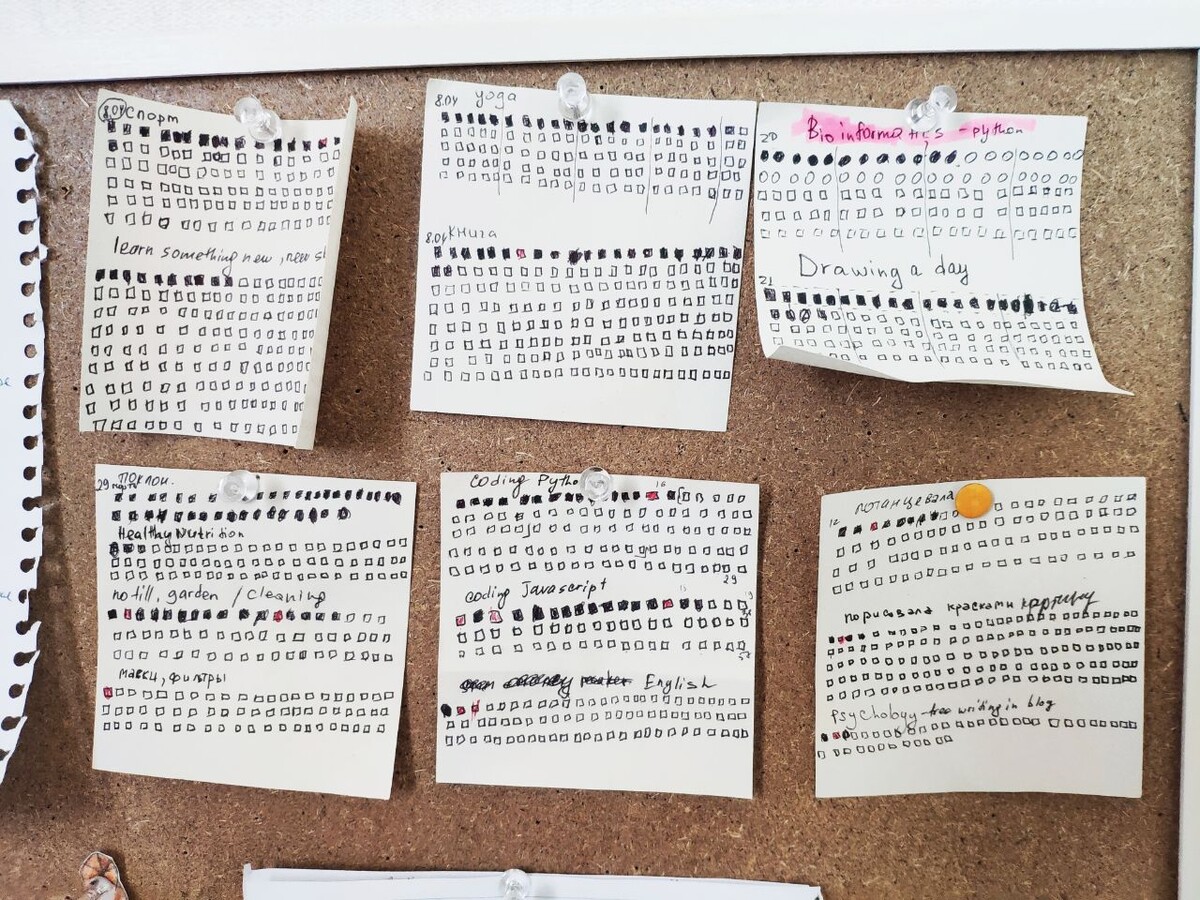 8.04 Спорт
learn something new, new s
8.04 yoga
8.04 Книга
20 Bioinformatics - python
21 Drawing a day
29 марта поклон.
Healthy Nutrition
no till, garden / Cleaning
маски, фильтры
coding Pytho
16
29
coding Javascript
15
19
English
12 потанцевала
порисовала красками картину
Psychology free writing in blog